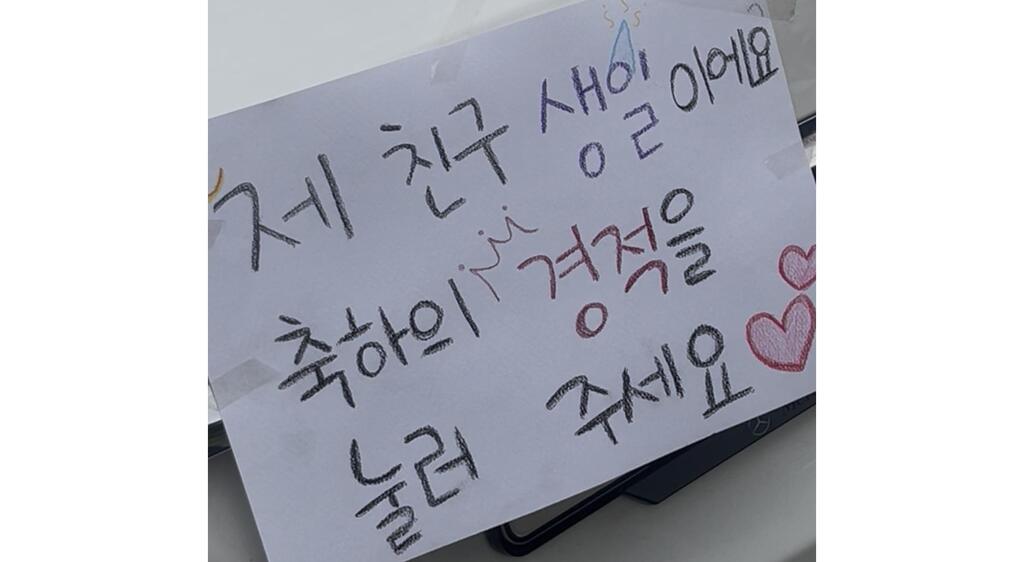 제 친구 생일이에요
축하의 경적을
눌러 주세요